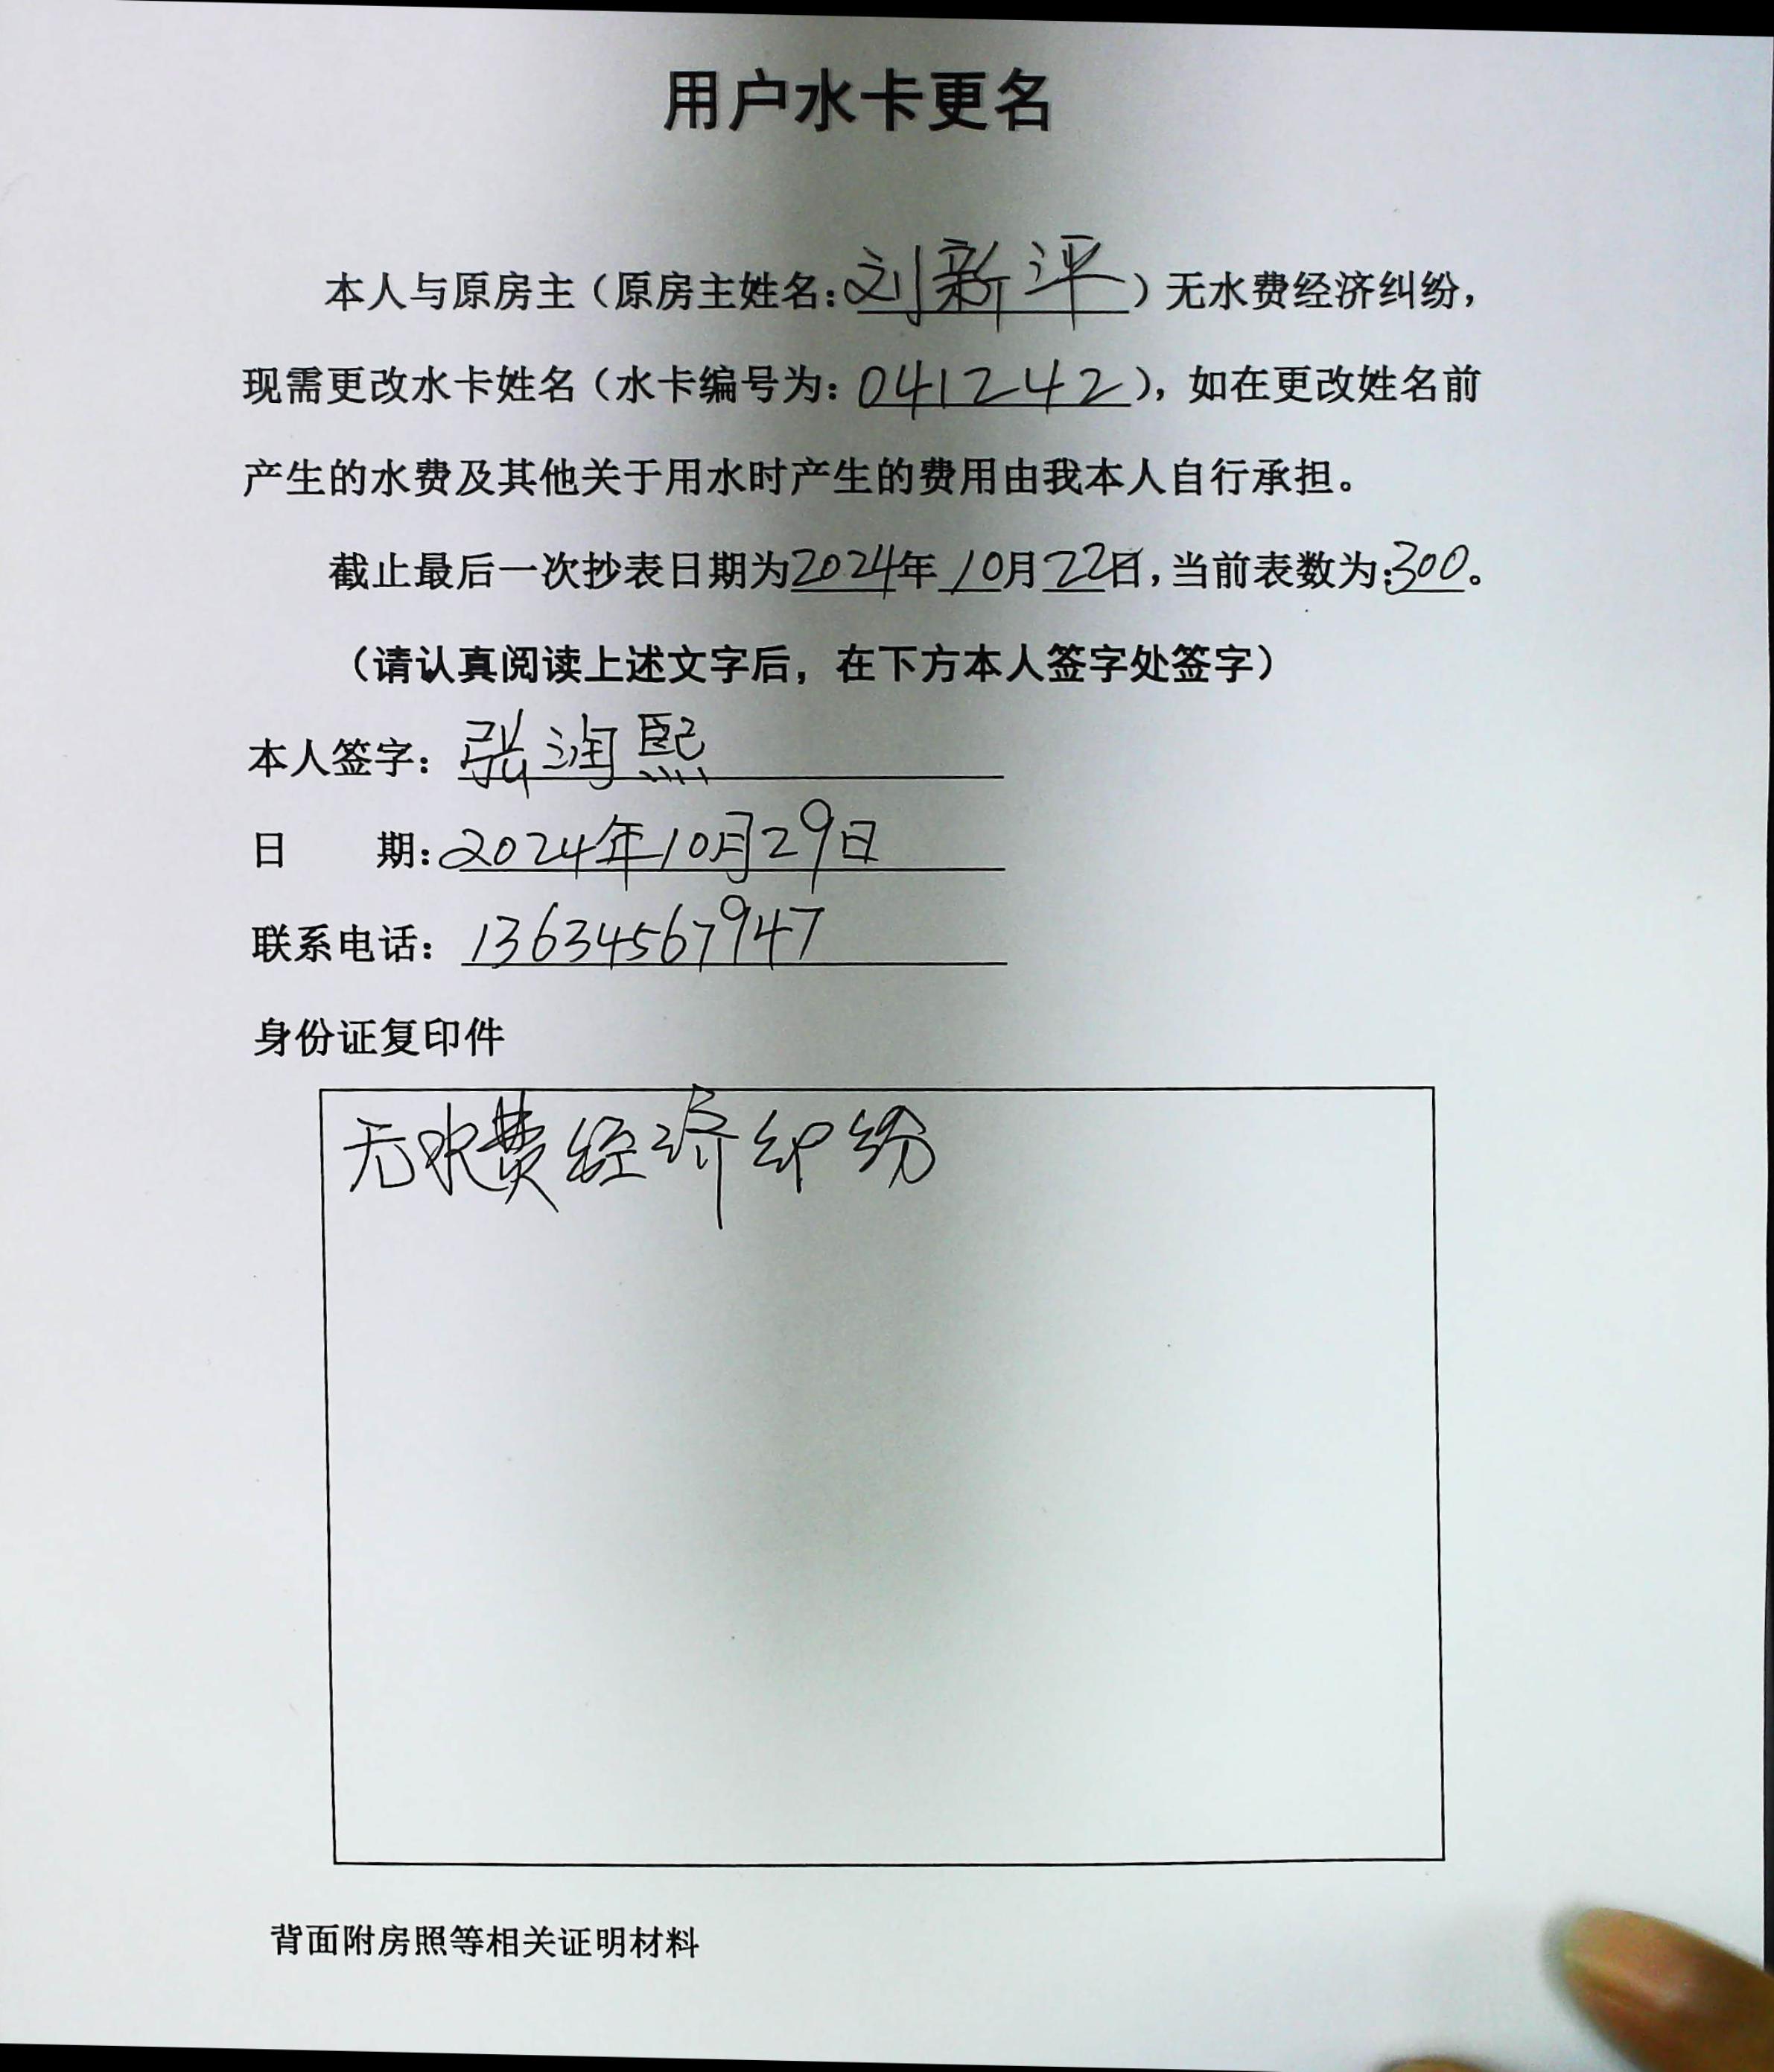 用户水卡更名
本人与原房主（原房主姓名：刘新评）无水费经济纠纷，
现需更改水卡姓名（水卡编号为：041242），如在更改姓名前
产生的水费及其他关于用水时产生的费用由我本人自行承担。
截止最后一次抄表日期为2024年10月22日，当前表数为：300。
（请认真阅读上述文字后，在下方本人签字处签字）
本人签字：张润熙
日　　期：2024年10月29日
联系电话：13634567947
身份证复印件
无水费经济纠纷
背面附房照等相关证明材料